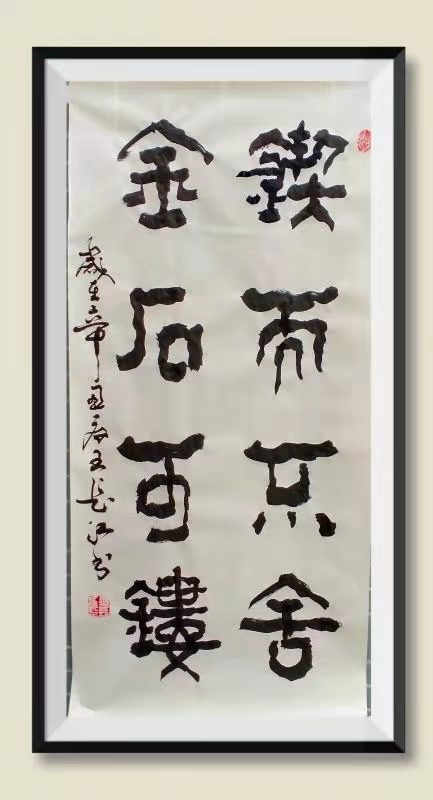 鍥而不舍
金石可鏤
歲在辛丑夏王長江书